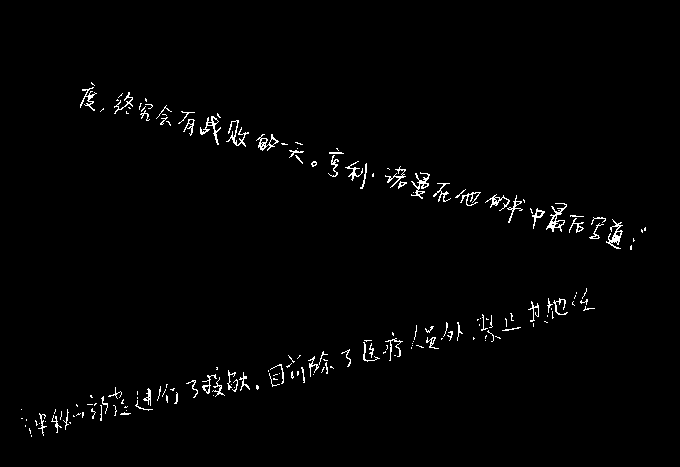 度，终究会有战败的一天。亨利·诺曼在他的书中最后写道：“
进行了接触。目前除了医疗人员外，禁止其他任